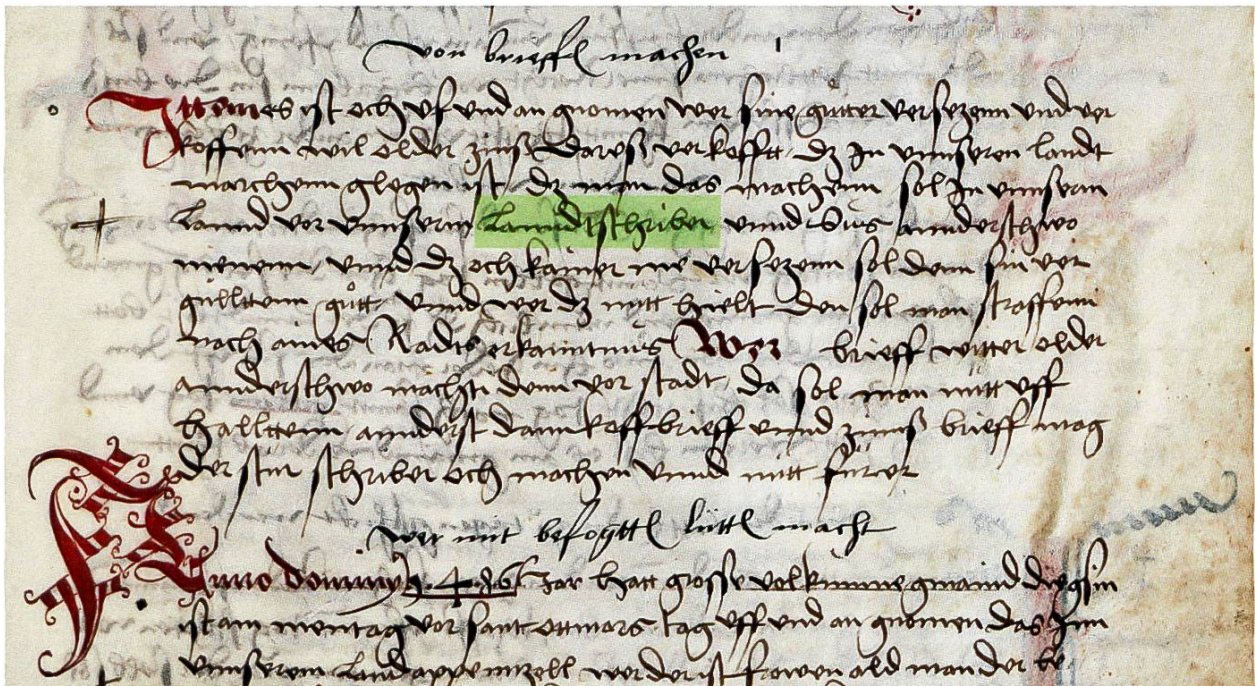 von brieffen machen
Item es ist och uf und an gnomen wer sine gütter versezenn und ver
koffenn wil older zinß daruß verkofft, dz in unnseren landt
marchenn glegen ist, dz man das machenn sol in unnserm
lannd vor unnserm lanndtschriber unnd sus annderschwo
nienenn, unnd dz och kainer me versezenn sol denn sin ver
gülltenn gůtt unnd wer dz nitt hielt den sol man straffenn
nach aines Radts erkanntnus Wer brieff witter older
annderschwo machti denn vor stadt, da sol man nitt uff
halltenn annderst dann koffbrieff unnd zinnß brieff mag
der schriber och machen unnd nitt fürer
wer mit befogtten lütten macht
Anno Dominy 1486 Jar hatt grosse volkumne gmaind die gsin
ist am mentag vor sant ottmars tag uff und an gnomen das Inn
unnserem land appenntzell wer der ist frowen ald man der be